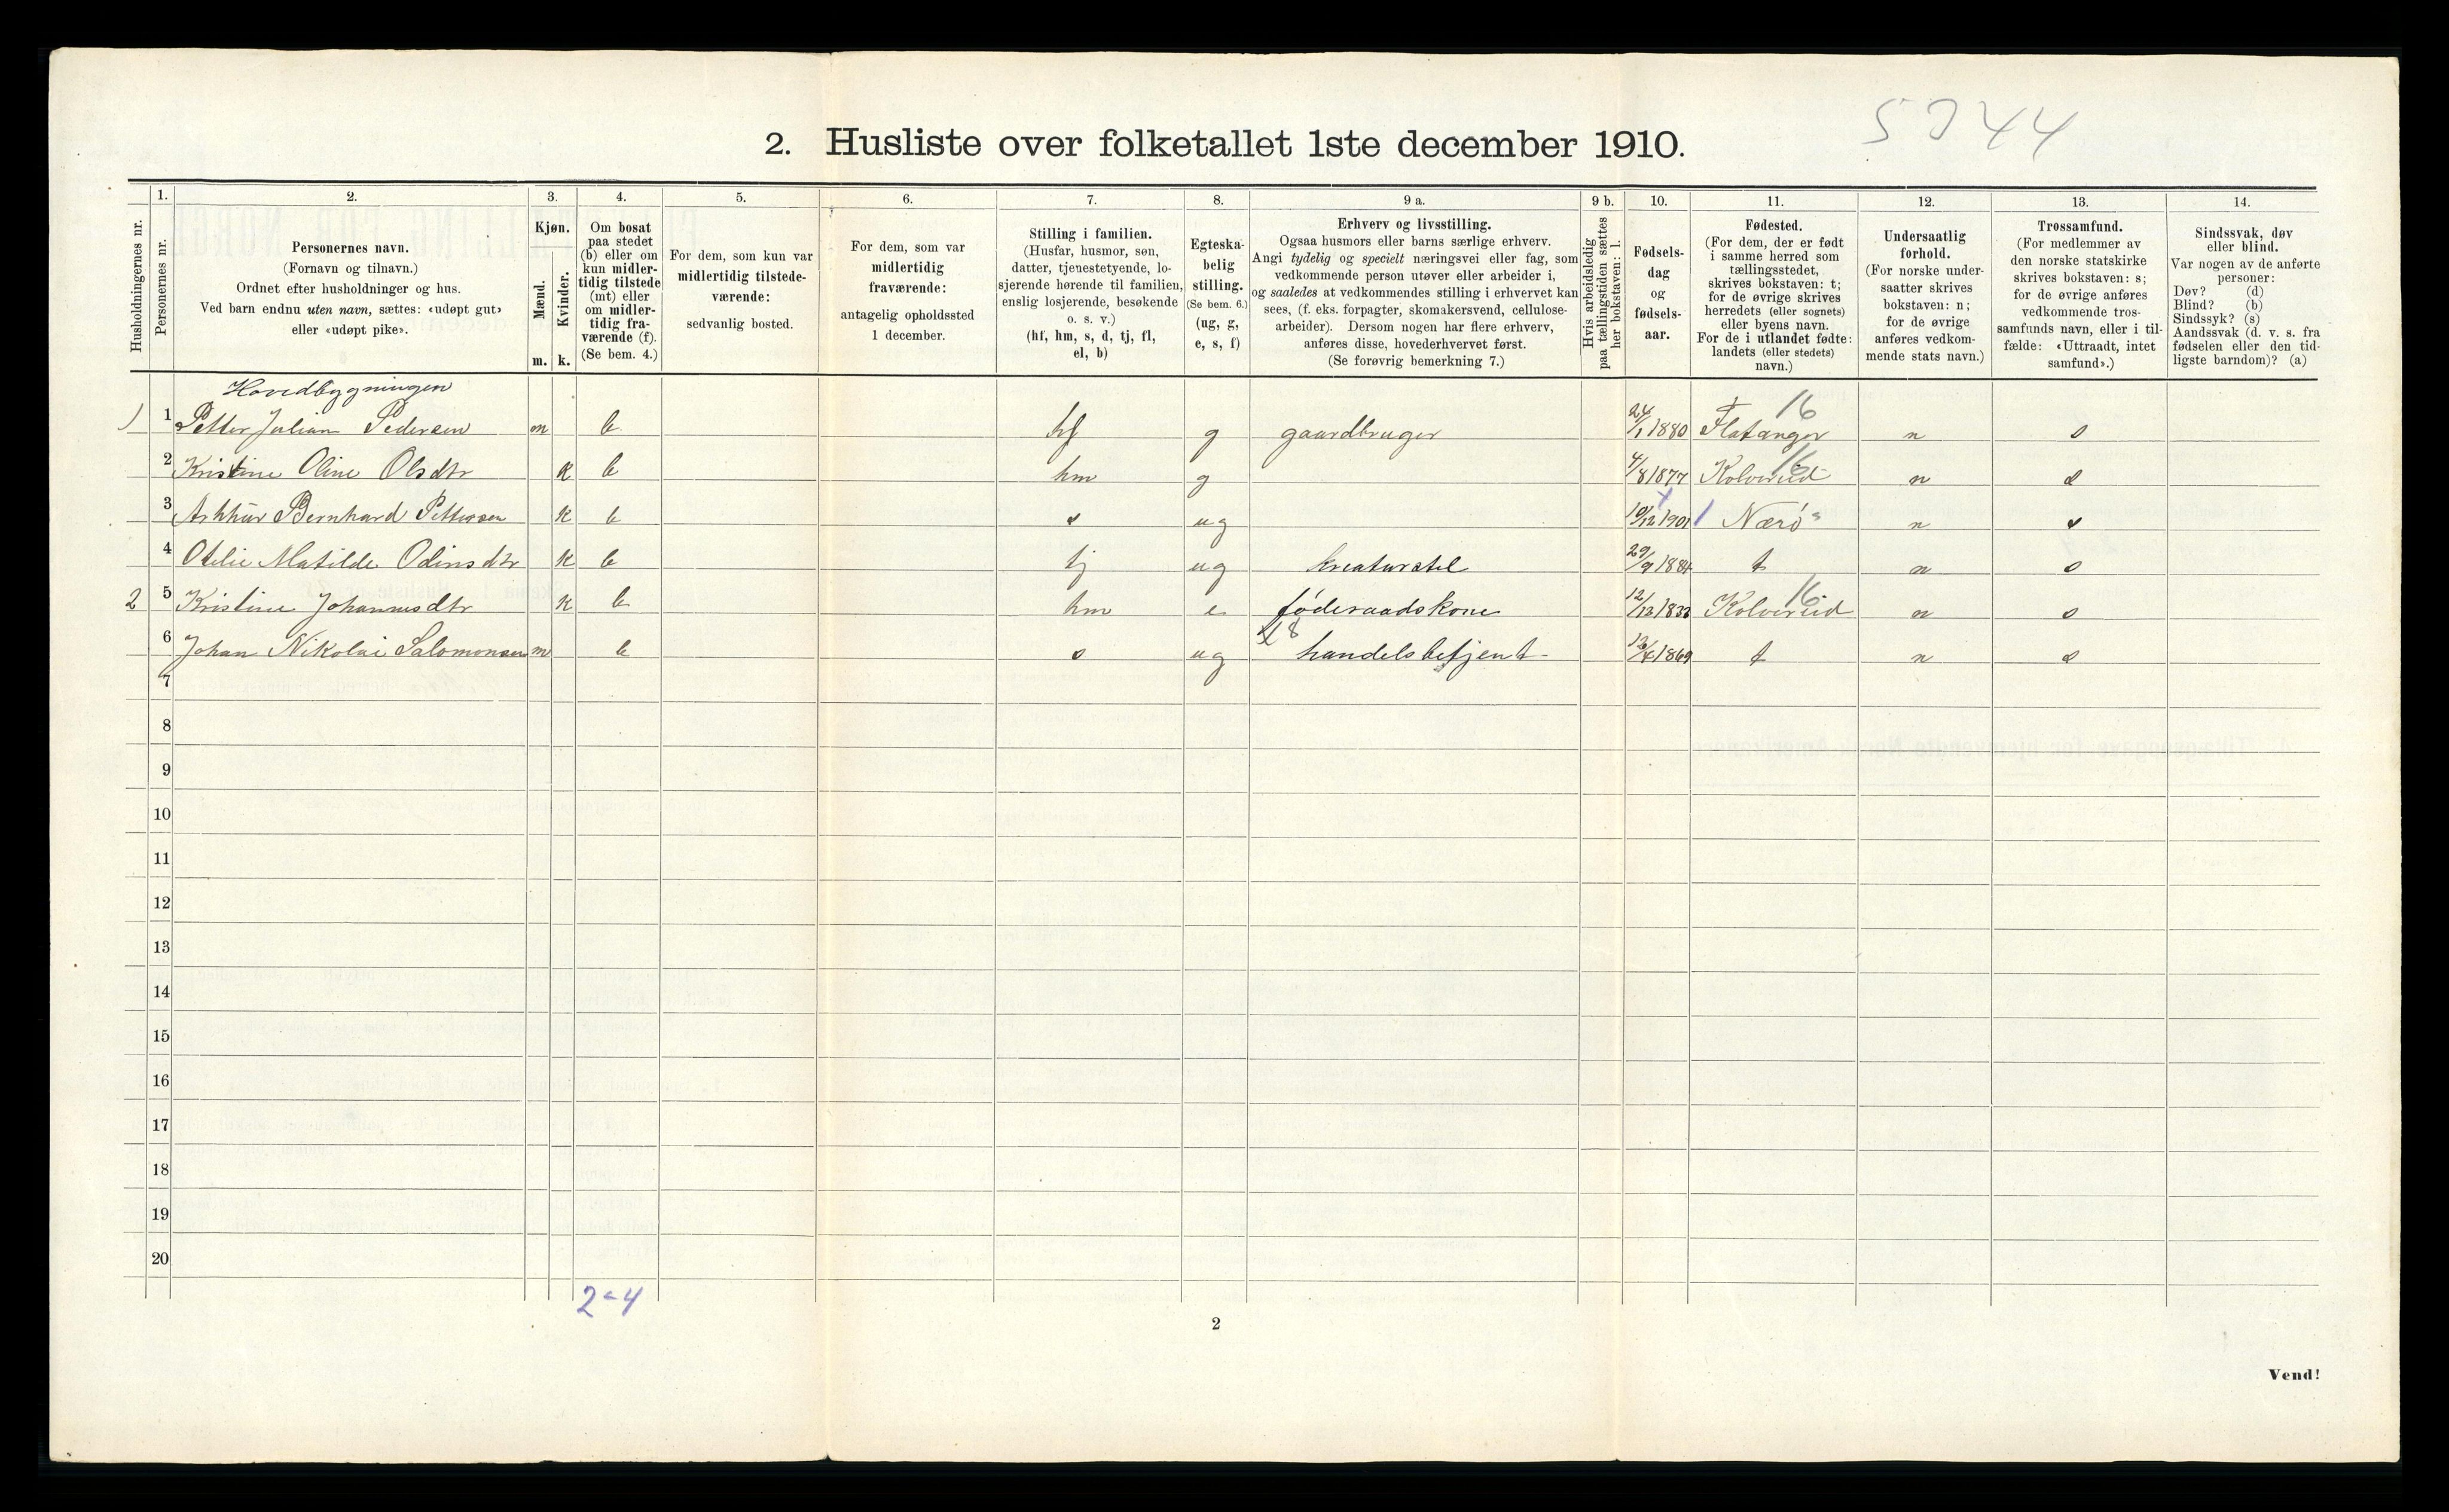 5044
2. Husliste over folketallet 1ste december 1910.
Husholdningernes nr.
1.
Personernes nr.
2.
Personernes navn.
(Fornavn og tilnavn.)
Ordnet efter husholdninger og hus.
Ved barn endnu uten navn, sættes: «udøpt gut»
eller «udøpt pike».
3.
Kjøn.
Mænd.
Kvinder.
m. k.
4.
Om bosat
paa stedet
(b) eller om
kun midler-
tidig tilstede
(mt) eller
om midler-
tidig fra-
værende (f).
(Se bem. 4.)
5.
For dem, som kun var
midlertidig tilstede-
værende:
sedvanlig bosted.
6.
For dem, som var
midlertidig
fraværende:
antagelig opholdssted
1 december.
7.
Stilling i familien.
(Husfar, husmor, søn,
datter, tjenestetyende, lo-
sjerende hørende til familien,
enslig losjerende, besøkende
o. s. v.)
(hf, hm, s, d, tj, fl,
el, b)
8.
Egteska-
belig
stilling.
(Se bem. 6.)
(ug, g,
e, s, f)
9 a.
Erhverv og livsstilling.
Ogsaa husmors eller barns særlige erhverv.
Angi tydelig og specielt næringsvei eller fag, som
vedkommende person utøver eller arbeider i,
og saaledes at vedkommendes stilling i erhvervet kan
sees, (f. eks. forpagter, skomakersvend, cellulose-
arbeider). Dersom nogen har flere erhverv,
anføres disse, hovederhvervet først.
(Se forøvrig bemerkning 7.)
9 b.
Hvis arbeidsledig
paa tællingstiden sættes
her bokstaven: l.
10.
Fødsels-
dag
og
fødsels-
aar.
11.
Fødested.
(For dem, der er født
i samme herred som
tællingsstedet,
skrives bokstaven: t;
for de øvrige skrives
herredets (eller sognets)
eller byens navn.
For de i utlandet fødte:
landets (eller stedets)
navn.)
12.
Undersaatlig
forhold.
(For norske under-
saatter skrives
bokstaven: n;
for de øvrige
anføres vedkom-
mende stats navn.)
13.
Trossamfund.
(For medlemmer av
den norske statskirke
skrives bokstaven: s;
for de øvrige anføres
vedkommende tros-
samfunds navn, eller i til-
fælde: «Uttraadt, intet
samfund».)
14.
Sindssvak, døv
eller blind.
Var nogen av de anførte
personer:
Døv? (d)
Blind? (b)
Sindssyk? (s)
Aandssvak (d. v. s. fra
fødselen eller den tid-
ligste barndom)? (a)
Hovedbygningen
1 1 Petter Julian Pedersen m b hf g gaardbruger 24/1 1880 Flatanger 16 n s
2 Kristine Oline Olsdtr k b hm g 4/8 1877 Kolvereid 16 n s
3 Arthur Bernhard Pettersen k b s ug 10/12 1901 1 Nærø n s
4 Otelie Matilde Odinsdtr k b tj ug kreaturstel 29/9 1884 t n s
2 5 Kristine Johannesdtr k b hm e føderaadskone 12/12 1833 Kolvereid 16 n s
6 Johan Nikolai Salomonsen m b s ug handelsbetjent 13/4 1869 t n s
7
8
9
10
11
12
13
14
15
16
17
18
19
20
2-4
2
Vend!